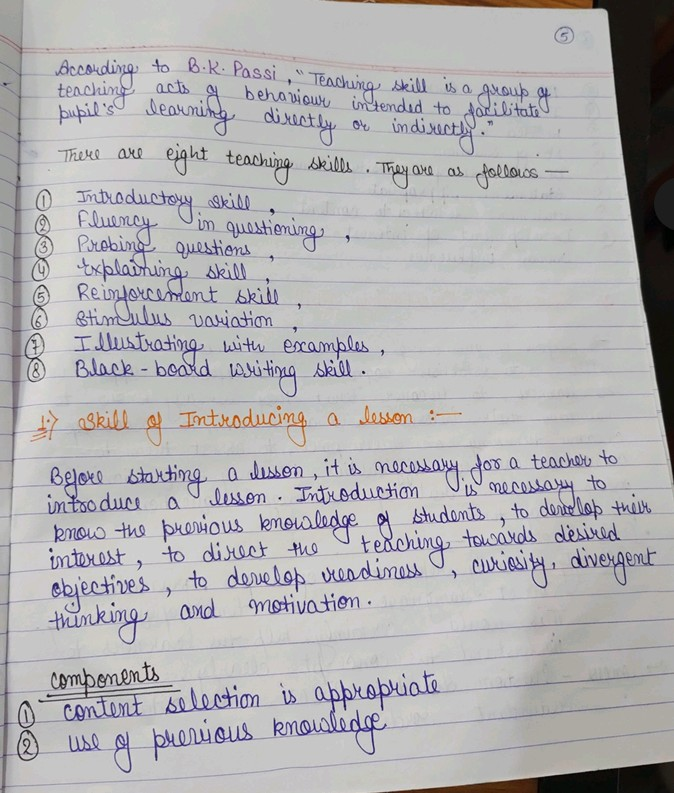 ⑤
According to B.K. Passi, "Teaching skill is a group of
teaching acts of behaviour intended to facilitate
pupil's learning directly or indirectly."
There are eight teaching skills. They are as follows —
① Introductory skill,
② Fluency in questioning,
③ Probing questions,
④ Explaining skill,
⑤ Reinforcement skill,
⑥ Stimulus variation,
⑦ Illustrating with examples,
⑧ Black-board writing skill.
1:) Skill of Introducing a lesson :—
Before starting a lesson, it is necessary for a teacher to
introduce a lesson. Introduction is necessary to
know the previous knowledge of students, to develop their
interest, to direct the teaching towards desired
objectives, to develop readiness, curiosity, divergent
thinking and motivation.
components
① content selection is appropriate
② use of previous knowledge